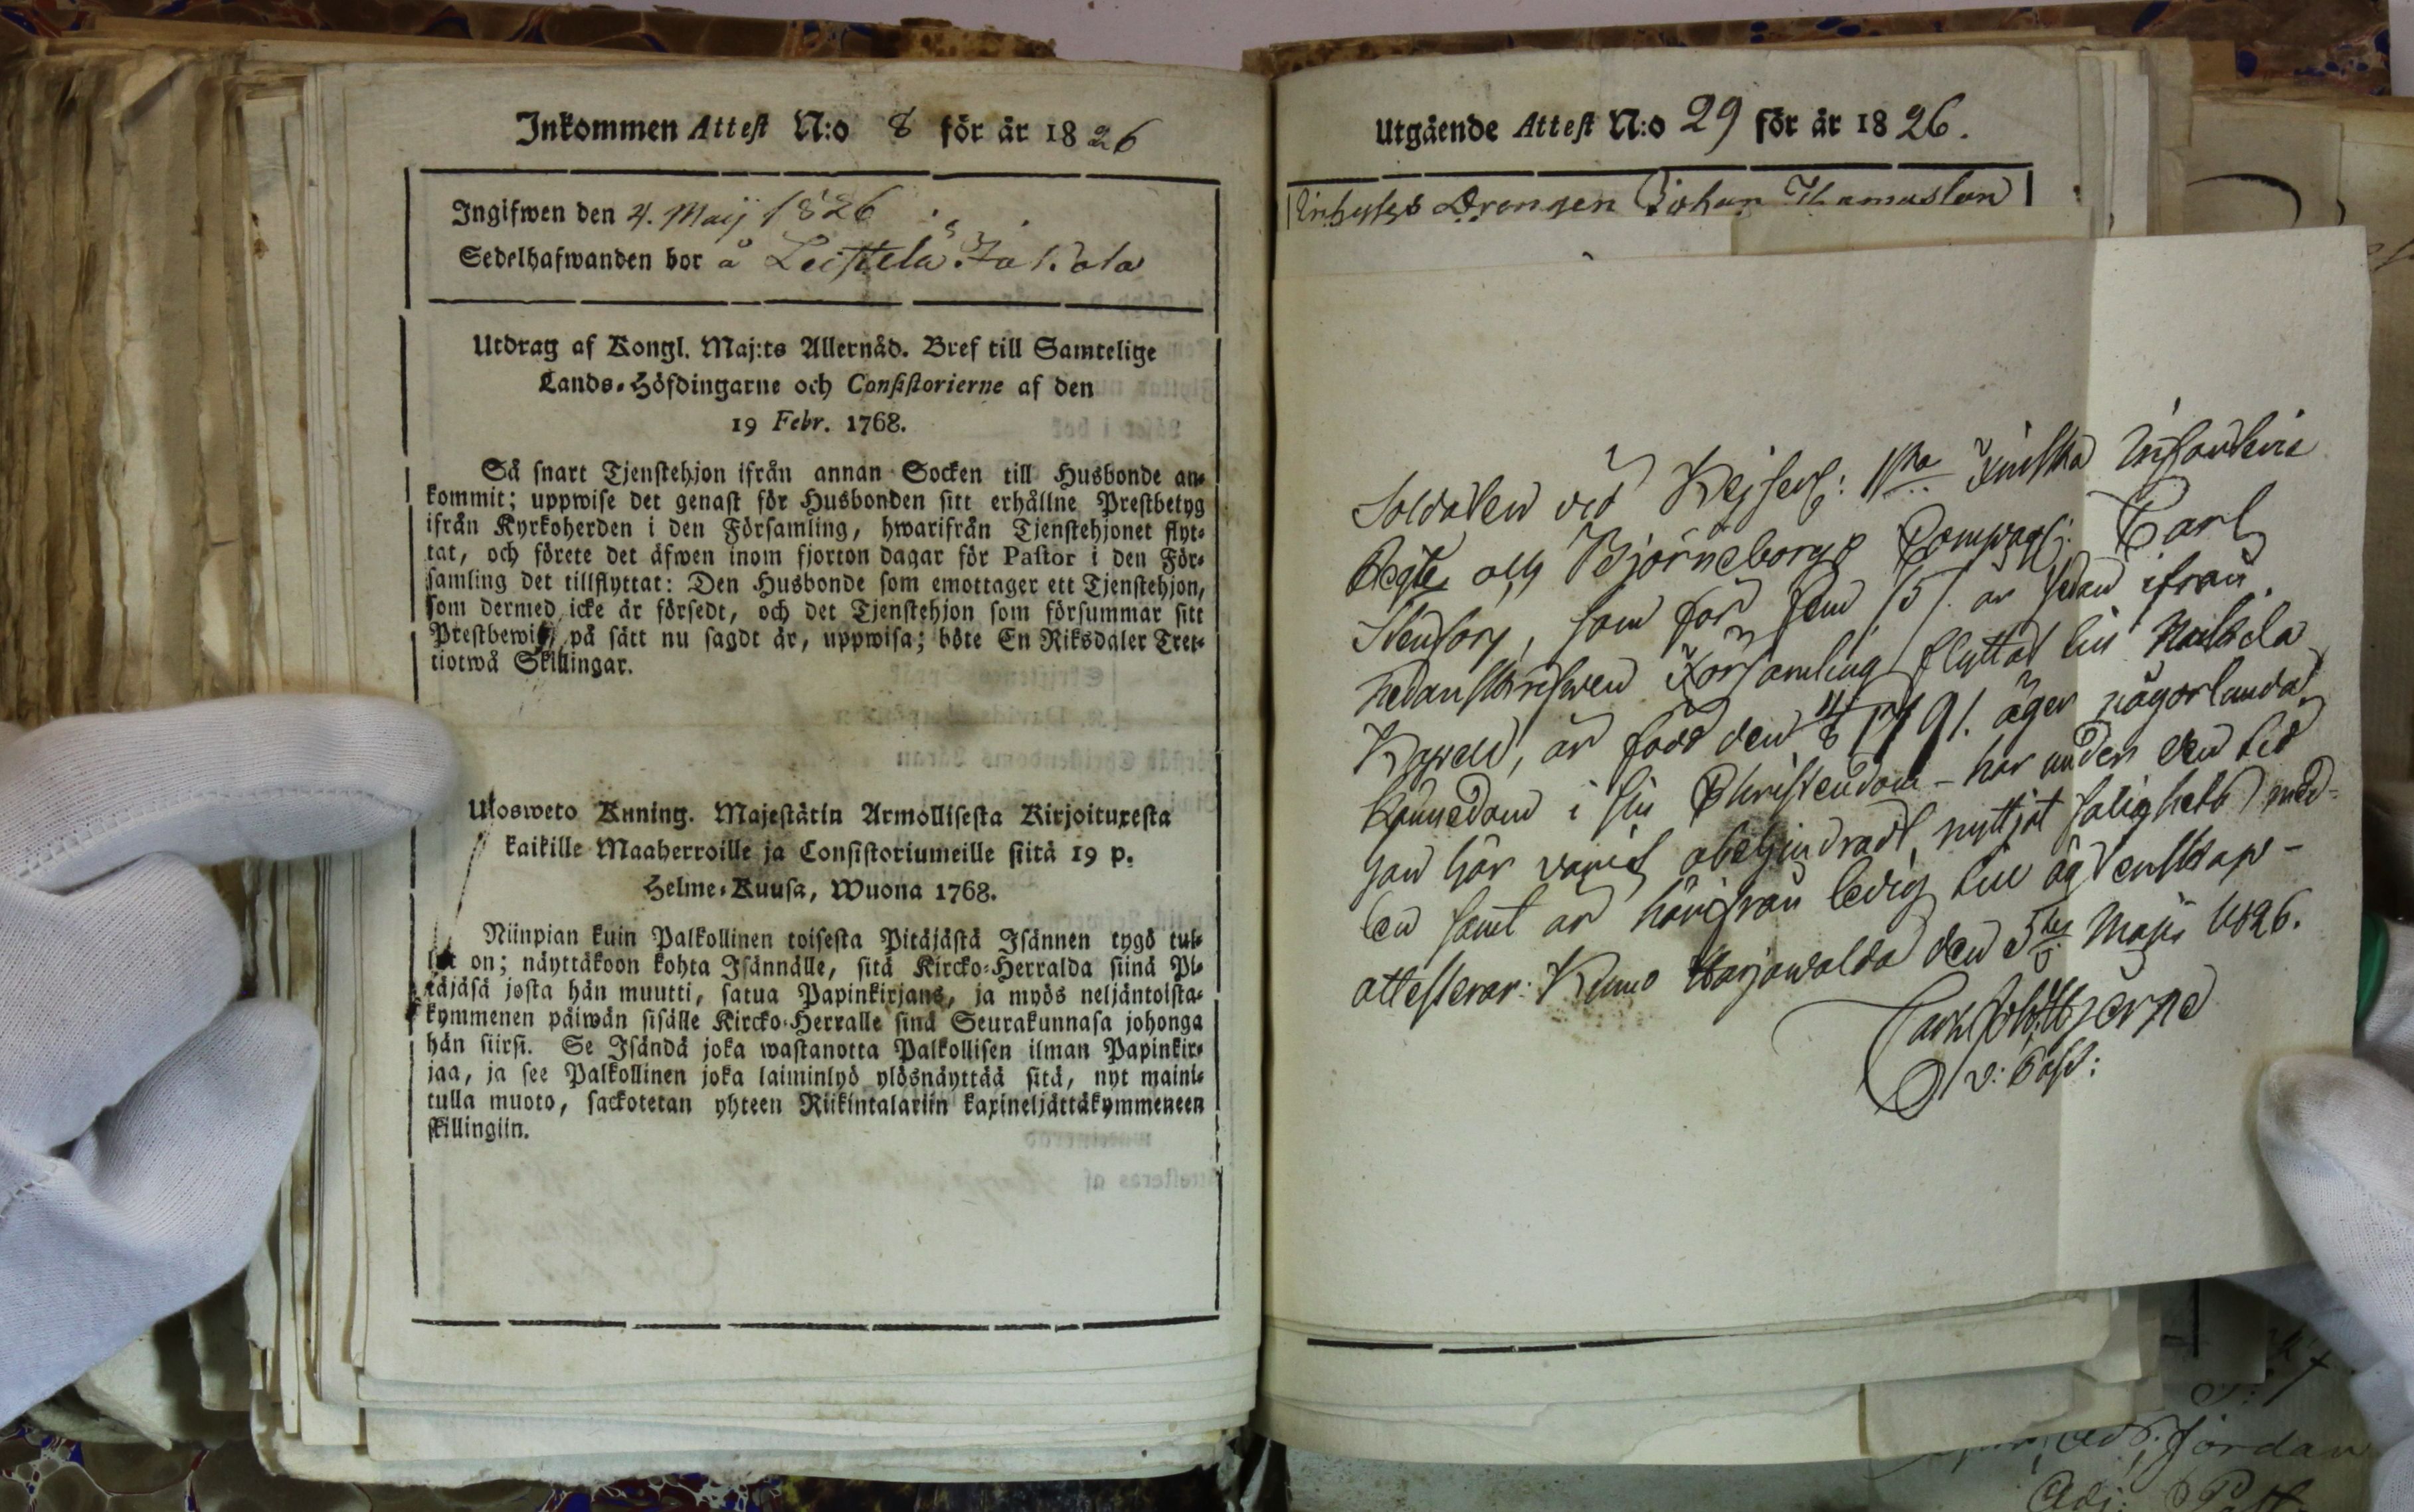 Inkommen Attest N:o 8 för år 1826
Ingifwen den 4. Maij 1826
Sedelhafwanden bor å Leistelä
Utdrag af Kongl. Maj:ts Allernåd. Bref till Samtelige
Lands-Höfdingarne och Consistorierne af den
19 Febr. 1768.
Så snart Tjenstehjon ifrån annan Socken till Husbonde an-
kommit; uppwise det genast för Husbonden sitt erhållne Prestbetyg
ifrån Kyrkoherden i den Församling, hwarifrån Tjenstehjonet flyt-
tat, och förete det äfwen inom fjorton dagar för Pastor i den För-
samling det tillflyttat: Den Husbonde som emottager ett Tjenstehjon,
som dermed icke är försedt, och det Tjenstehjon som försummar sitt
Prestbewis, på sätt nu sagdt är, uppwisa; böte En Riksdaler Tret-
tiotwå Skillingar.
Ulosweto Kuning. Majestätin Armollisesta Kirjoituxesta
kaikille Maaherroille ja Consistoriumeille siitä 19 p.
Helme-Kuusa, Wuona 1768.
Niinpian kuin Palkollinen toisesta Pitäjästä Isännen tygö tul-
lut on; näyttäkoon kohta Isännälle, sitä Kircko-Herralda siinä Pi-
täjäsä josta hän muutti, satua Papinkirjans, ja myös neljäntoista-
kymmenen päiwän sisälle Kircko-Herralle sinä Seurakunnasa johonga
hän siirsi. Se Isändä joka wastanotta Palkollisen ilman Papinkir-
jaa, ja see Palkollinen joka laiminlyö ylösnäyttää sitä, nyt maini-
tulla muoto, sackotetan yhteen Riikintalariin kaxineljättäkymmeneen
skillingiin.
Utgående Attest N:o 29 för år 1826.
Inhyses Drengen Johan Thomasson
Soldaten vid Kejserl: 1sta Finska Infanterie
Regte och Björneborgs Compagi: Carl
Stenfors, som för fem /5/ år sedan ifrån
nedanskrefwen Församling flyttat till
är född den 1791. äger någorlunda
Kännedom i sin Christendom - har under den tid
han här varit obehindradt nyttjat salighets med-
len samt är härifrån ledig till ägtenskap -
attesterar: Kumo Harjawalda den 5te Maji 1826.
Carl
v: Past: